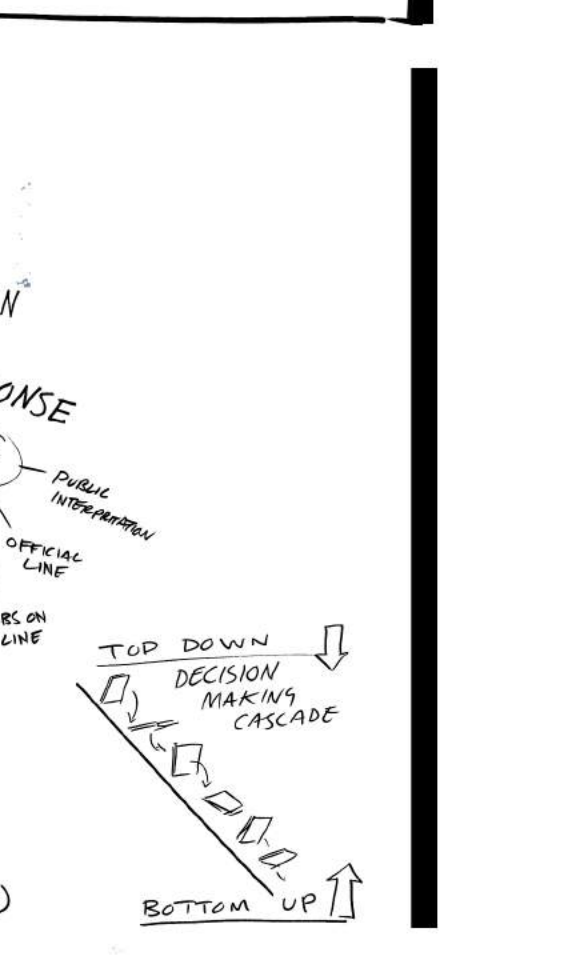 N
ONSE
PUBLIC
INTERPRTATION
OFFICIAL
LINE
BS ON
LINE
TOP DOWN
DECISION
MAKING
CASCADE
BOTTOM UP